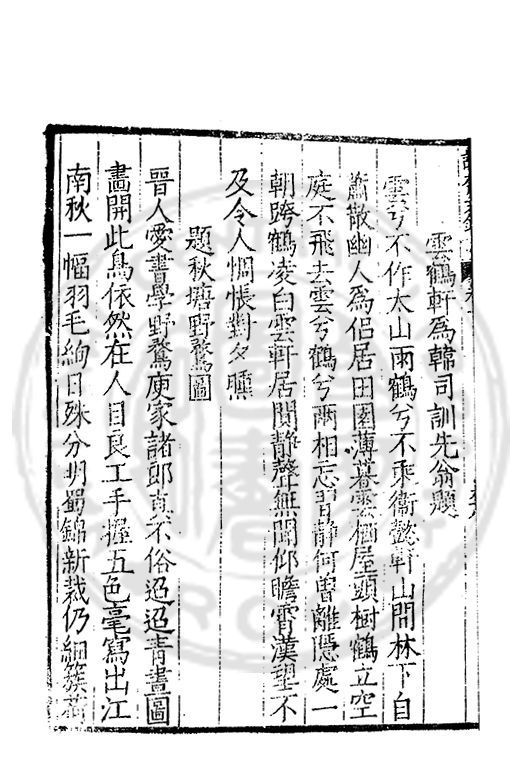 雲鶴軒為韓司訓先翁題
雲兮不作太山雨鶴兮不乘衛懿軒山間林下自
蕭散幽人為侶居田園薄暮雲栖屋頭樹鶴立空
庭不飛去雲兮鶴兮兩相忘習靜何曾離隱處一
朝跨鶴凌白雲軒居閴靜聲無聞仰瞻霄漢望不
及令人惆悵對夕曛
題秋塘野鶩圖
晉人愛書學野鶩庾家諸郎真不俗迢迢青晝圖
畵開此鳥依然在人目良工手握五色毫寫出江
南秋一幅羽毛絢日殊分明蜀錦新裁仍細簇